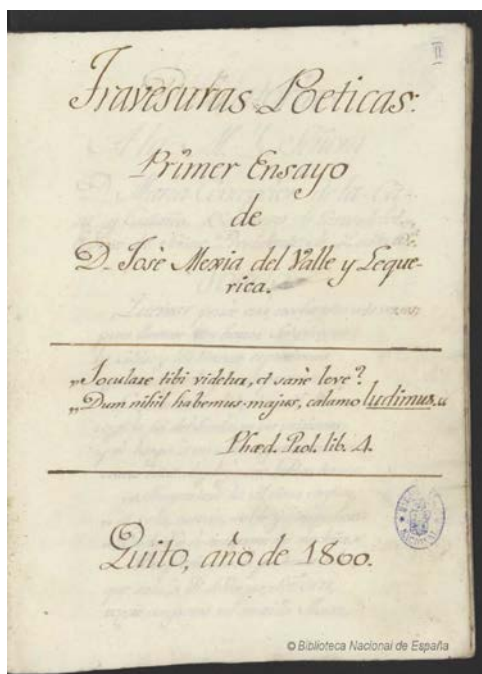 Travesuras Poeticas:
Primer Ensayo
de
D. Josè Mexia del Valle y Leque-
rica.
„Joculare tibi videtur, et sanè leve?
„Dum nihil habemus majus, calamo ludimus.„
Phæd. Prol. lib. 4.
Quito, año de 1800.
© Biblioteca Nacional de España